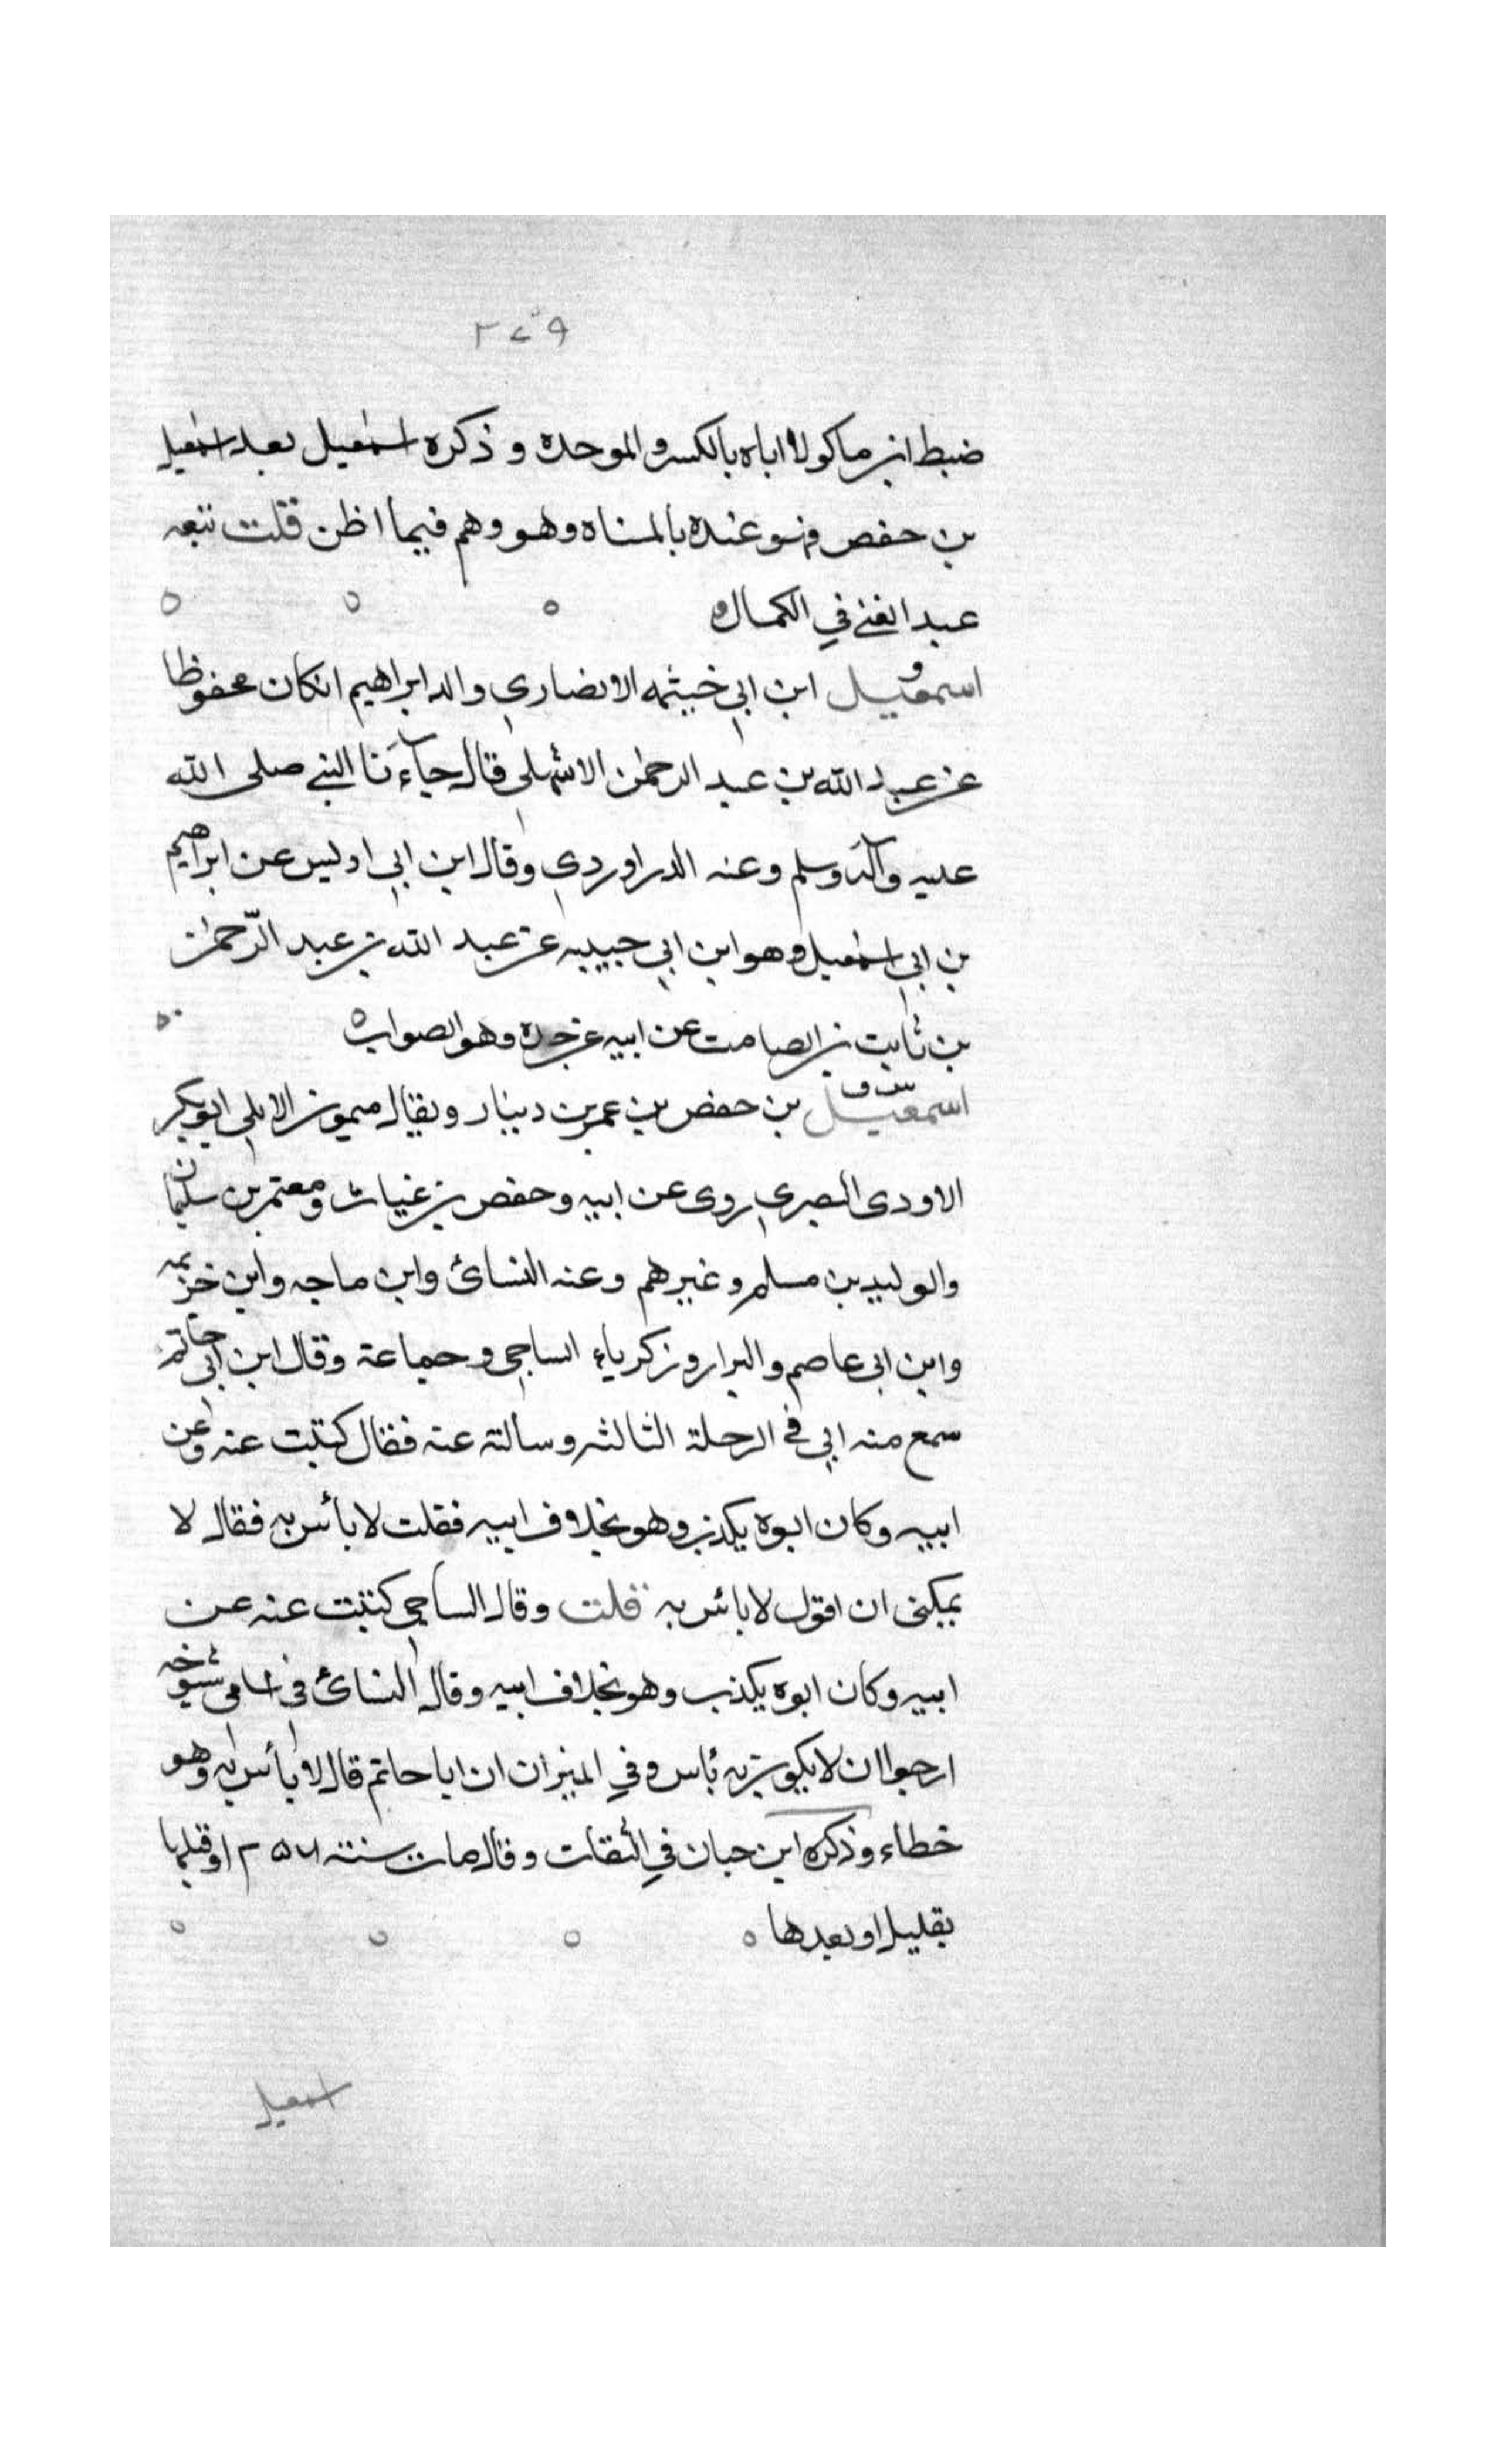 ٢٤٩
ضبط ابن ماكولا اباه بالكسر والموحدة و ذكره اسمعيل بعد اسمعيل
بن حفص فهو عنده بالمثناه وهو وهم فيما اظن قلت تبعه
عبد الغني في الكمال
اسمعيل ابن ابي خيثمه الانصاري والد ابراهيم انكان محفوظا
عن عبد الله بن عبد الرحمن الاشهلي قال جاءنا النبي صلى الله
عليه وآله وسلم وعنه الدراوردي وقال ابن ابي اوليس عن ابراهيم
بن ابي اسمعيل وهو ابن ابي حبيبه عن عبد الله بن عبد الرّحمن
بن ثابت بن الصامت عن ابيه عن جده وهو الصواب
اسمعيل بن حفص بن عمر بن دينار ويقال ميمون الابلي ابو بكر
الاودى البصري روى عن ابيه وحفص بن غياث ومعتمر بن سليمان
والوليد بن مسلم وغيرهم وعنه النسائ وابن ماجه وابن خزيمه
وابن ابى عاصم والبزار وزكرياء الساجي وجماعة وقال ابن ابى حاتم
سمع منه ابي في الرحلة الثالثه وسالته عنه فقال كتبت عنه وعن
ابيه وكان ابوه يكذب وهو بخلاف ابيه فقلت لا بأس به فقال لا
يمكننى ان اقول لا بائس به قلت وقال الساجي كتبت عنه عن
ابيه وكان ابوه يكذب وهو بخلاف ابيه وقال النسائ فى اسامى شيوخه
ارجوا ان لا يكون به بأس وفي الميزان ان ابا حاتم قال لا بأس به وهو
خطاء وذكره ابن حبان في الثقات وقال مات سنة ٢٥٧ او قبلها
بقليل او بعدها
اسمعيل